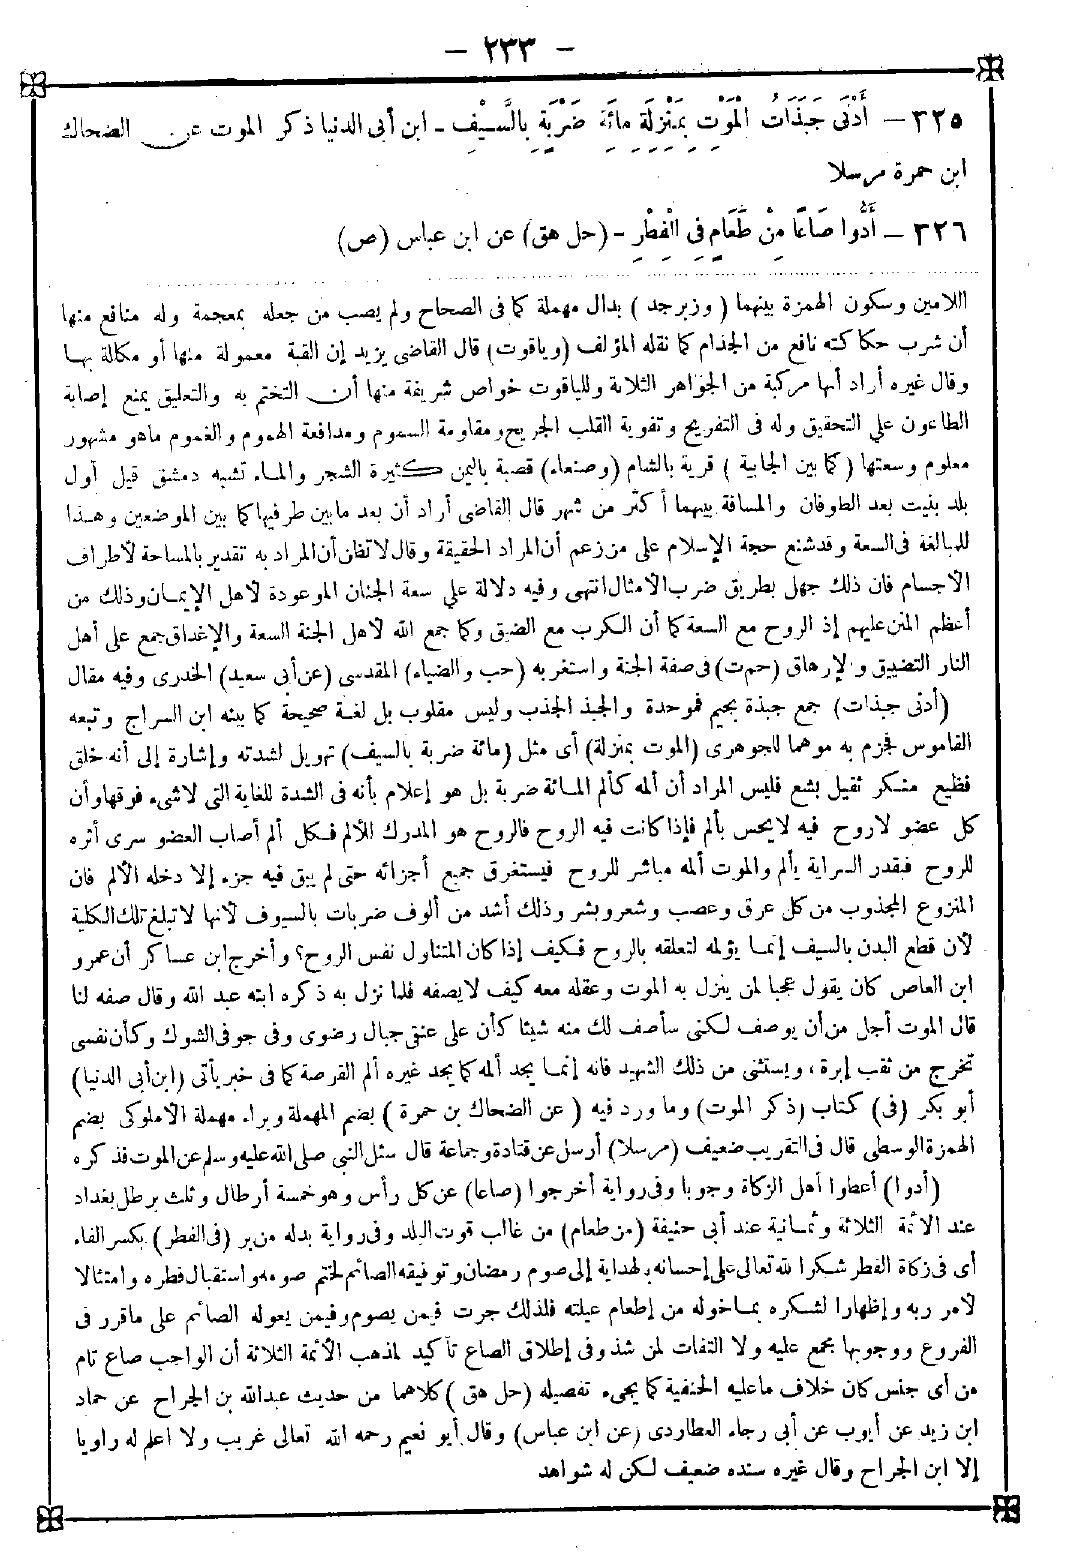 – ٢٣٣ –
٣٢٥ – أَدْنَى جَبَذَاتُ الْمَوْتِ بِمَنْزِلَةِ مِائَةِ ضَرْبَةٍ بِالسَّيْفِ – ابن أبى الدنيا ذكر الموت عن الضحاك
ابن حمرة مرسلا
٣٢٦ – أَدُّوا صَاعًا مِنْ طَعَامٍ فِى الْفِطْرِ – (حل هق) عن ابن عباس (ص)
اللامين وسكون الهمزة بينهما (وزبرجد) بدال مهملة كما فى الصحاح ولم يصب من جعله بمعجمة وله منافع منها
أن شرب حكاكته نافع من الجذام كما نقله المؤلف (وياقوت) قال القاضى يزيد إن القبة معمولة منها أو مكالة بها
وقال غيره أراد أنها مركبة من الجواهر الثلاثة وللياقوت خواص شريفة منها أن التختم به والتعليق يمنع إصابة
الطاعون على التحقيق وله فى التفريح وتقوية القلب الجريح ومقاومة السموم ومدافعة الهموم والغموم ماهو مشهور
معلوم وسعتها (كما بين الجابية) قرية بالشام (وصنعاء) قصبة باليمن كثيرة الشجر والماء تشبه دمشق قيل أول
بلد بنيت بعد الطوفان والمسافة بينهما أكثر من شهر قال القاضى أراد أن بعد مابين طرفيها كما بين الموضعين وهذا
للمبالغة فى السعة وقد شنع حجة الإسلام على من زعم أن المراد الحقيقة وقال لاتظن أن المراد به تقدير بالمساحة لأطراف
الأجسام فان ذلك جهل بطريق ضرب الأمثال انتهى وفيه دلالة على سعة الجنان الموعودة لأهل الإيمان وذلك من
أعظم المنن عليهم إذ الروح مع السعة كما أن الكرب مع الضيق وكما جمع الله لأهل الجنة السعة والإغداق جمع على أهل
النار التضييق والإرهاق (حم ت) فى صفة الجنة واستغربه (حب والضياء) المقدسى (عن أبى سعيد) الخدرى وفيه مقال
(أدنى جبذات) جمع جبذة بجيم فموحدة والجبذ الجذب وليس مقلوب بل لغة صحيحة كما بينه ابن السراج وتبعه
القاموس فجزم به موهما للجوهرى (الموت بمنزلة) أى مثل (مائة ضربة بالسيف) تهويل لشدته وإشارة إلى أنه خلق
فظيع منكر ثقيل بشع فليس المراد أن ألمه كألم المائة ضربة بل هو إعلام بأنه فى الشدة للغاية التى لاشىء فوقها وأن
كل عضو لاروح فيه لايحس بألم فإذا كانت فيه الروح فالروح هو المدرك للألم فكل ألم أصاب العضو سرى أثره
للروح فبقدر السراية يألم والموت ألمه مباشر للروح فيستغرق جميع أجزائه حتى لم يبق فيه جزء إلا دخله الألم فان
المنزوع المجذوب من كل عرق وعصب وشعر وبشر وذلك أشد من ألوف ضربات بالسيوف لأنها لاتبلغ تلك الكلية
لأن قطع البدن بالسيف إنما يؤلمه لتعلقه بالروح فكيف إذا كان المتناول نفس الروح؟ وأخرج ابن عساكر أن عمرو
ابن العاص كان يقول عجبا لمن ينزل به الموت وعقله معه كيف لايصفه فلما نزل به ذكره ابنه عبد الله وقال صفه لنا
قال الموت أجل من أن يوصف لكنى سأصف لك منه شيئا كأن على عنقى جبال رضوى وفى جوفى الشوك وكأن نفسى
تخرج من ثقب إبرة، ويستثنى من ذلك الشهيد فانه إنما يجد ألمه كما يجد غيره ألم القرصة كما فى خبر يأتى (ابن أبى الدنيا)
أبو بكر (فى) كتاب (ذكر الموت) وما ورد فيه (عن الضحاك بن حمرة) بضم المهملة وبراء مهملة الأملوكى بضم
الهمزة الوسطى قال فى التقريب ضعيف (مرسلا) أرسل عن قتادة وجماعة قال سئل النبى صلى الله عليه وسلم عن الموت فذكره
(أدوا) أعطوا أهل الزكاة وجوبا وفى رواية أخرجوا (صاعا) عن كل رأس وهو خمسة أرطال وثلث برطل بغداد
عند الأئمة الثلاثة وثمانية عند أبى حنيفة (من طعام) من غالب قوت البلد وفى رواية بدله من بر (فى الفطر) بكسر الفاء
أى فى زكاة الفطر شكرا لله تعالى على إحسانه بالهداية إلى صوم رمضان وتوفيقه الصائم لختم صومه واستقبال فطره وامتثالا
لأمر ربه وإظهارا لشكره بما خوله من إطعام عيلته فلذلك جرت فيمن يصوم وفيمن يعوله الصائم على ماقرر فى
الفروع ووجوبها مجمع عليه ولا التفات لمن شذ وفى إطلاق الصاع تأكيد لمذهب الأئمة الثلاثة أن الواجب صاع تام
من أى جنس كان خلاف ماعليه الحنفية كما يجىء تفصيله (حل هق) كلاهما من حديث عبدالله بن الجراح عن حماد
ابن زيد عن أيوب عن أبى رجاء العطاردى (عن ابن عباس) وقال أبو نعيم رحمه الله تعالى غريب ولا اعلم له راويا
إلا ابن الجراح وقال غيره سنده ضعيف لكن له شواهد